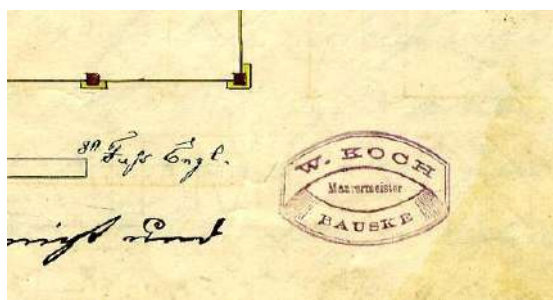 30 Fuss Engl.
W. KOCH
Maurermeister
BAUSKE
nicht und